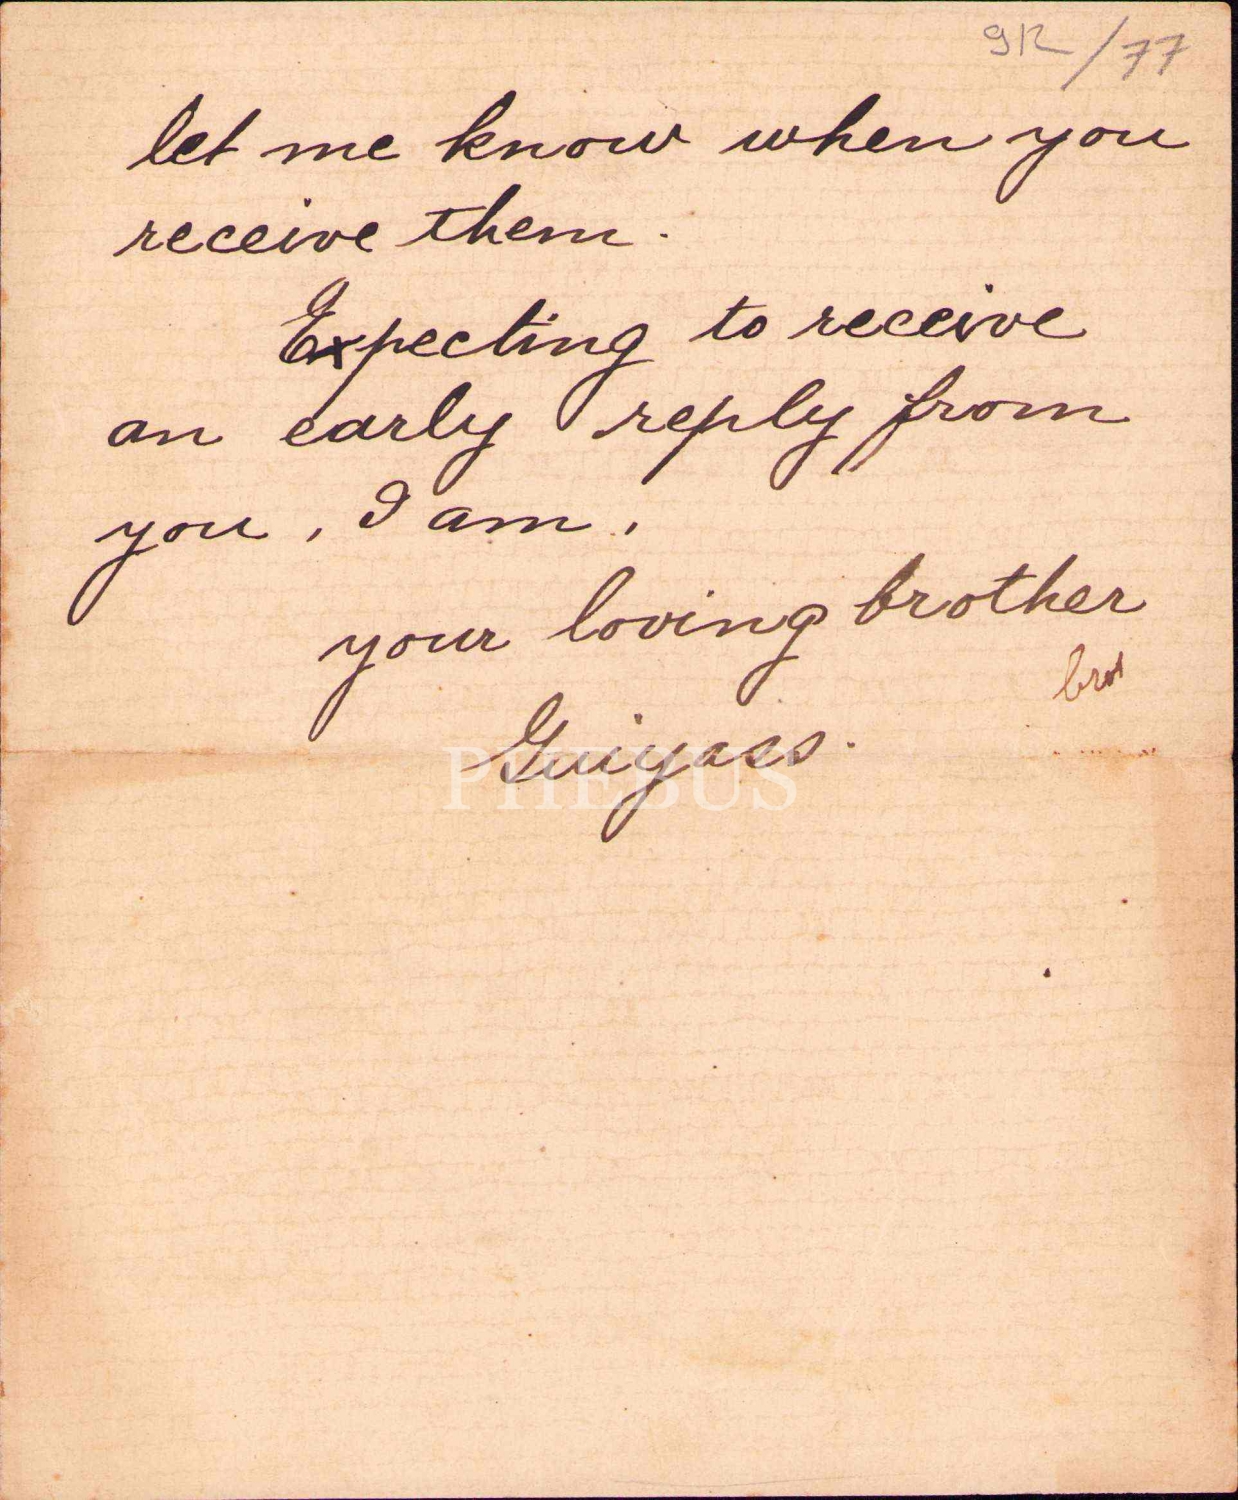 912/77
let me know when you
receive them.
Expecting to receive
an early reply from
you, I am,
your loving brother
brot
Guiyass.
PHEBUS